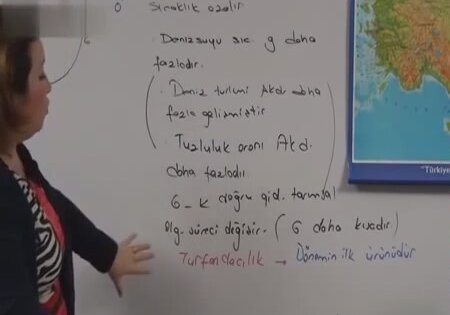 0 Sıcaklık azalır
. Denizsuyu sıc. g daha
fazladır.
. Deniz turizmi Akd daha
fazla gelişmiştir
. Tuzluluk oranı Akd.
daha fazladır
G - K doğru gid. tarımsal
olg. süreci değişir. ( G daha kısadır)
Turfandacılık → Dönemin ilk ürünüdür
6
"Türkiye